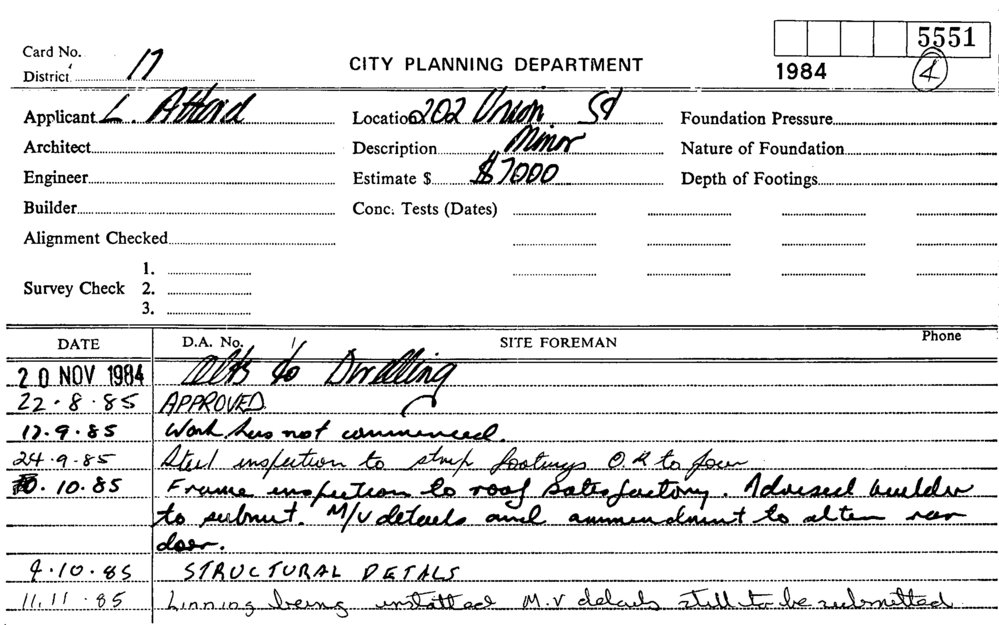 5551
Card No.
District 17
CITY PLANNING DEPARTMENT
1984
4
Applicant L. Attard
Location 202 Union St
Foundation Pressure
Architect
Description Minor
Nature of Foundation
Engineer
Estimate $ $7000
Depth of Footings
Builder
Conc. Tests (Dates)
Alignment Checked
Survey Check
1.
2.
3.
DATE
D.A. No. /
SITE FOREMAN
Phone
20 NOV 1984 Alts to Dwelling
22.8.85 APPROVED.
17.9.85 Work has not commenced.
24.9.85 Steel inspection to strip footings O.K to pour
.10.85 Frame inspection to roof satisfactory. Advised builder
to submit. M/V details and ammendment to alter rear
door.
9.10.85 STRUCTURAL DETALS
11.11.85 Linning being installed M.V details still to be submitted